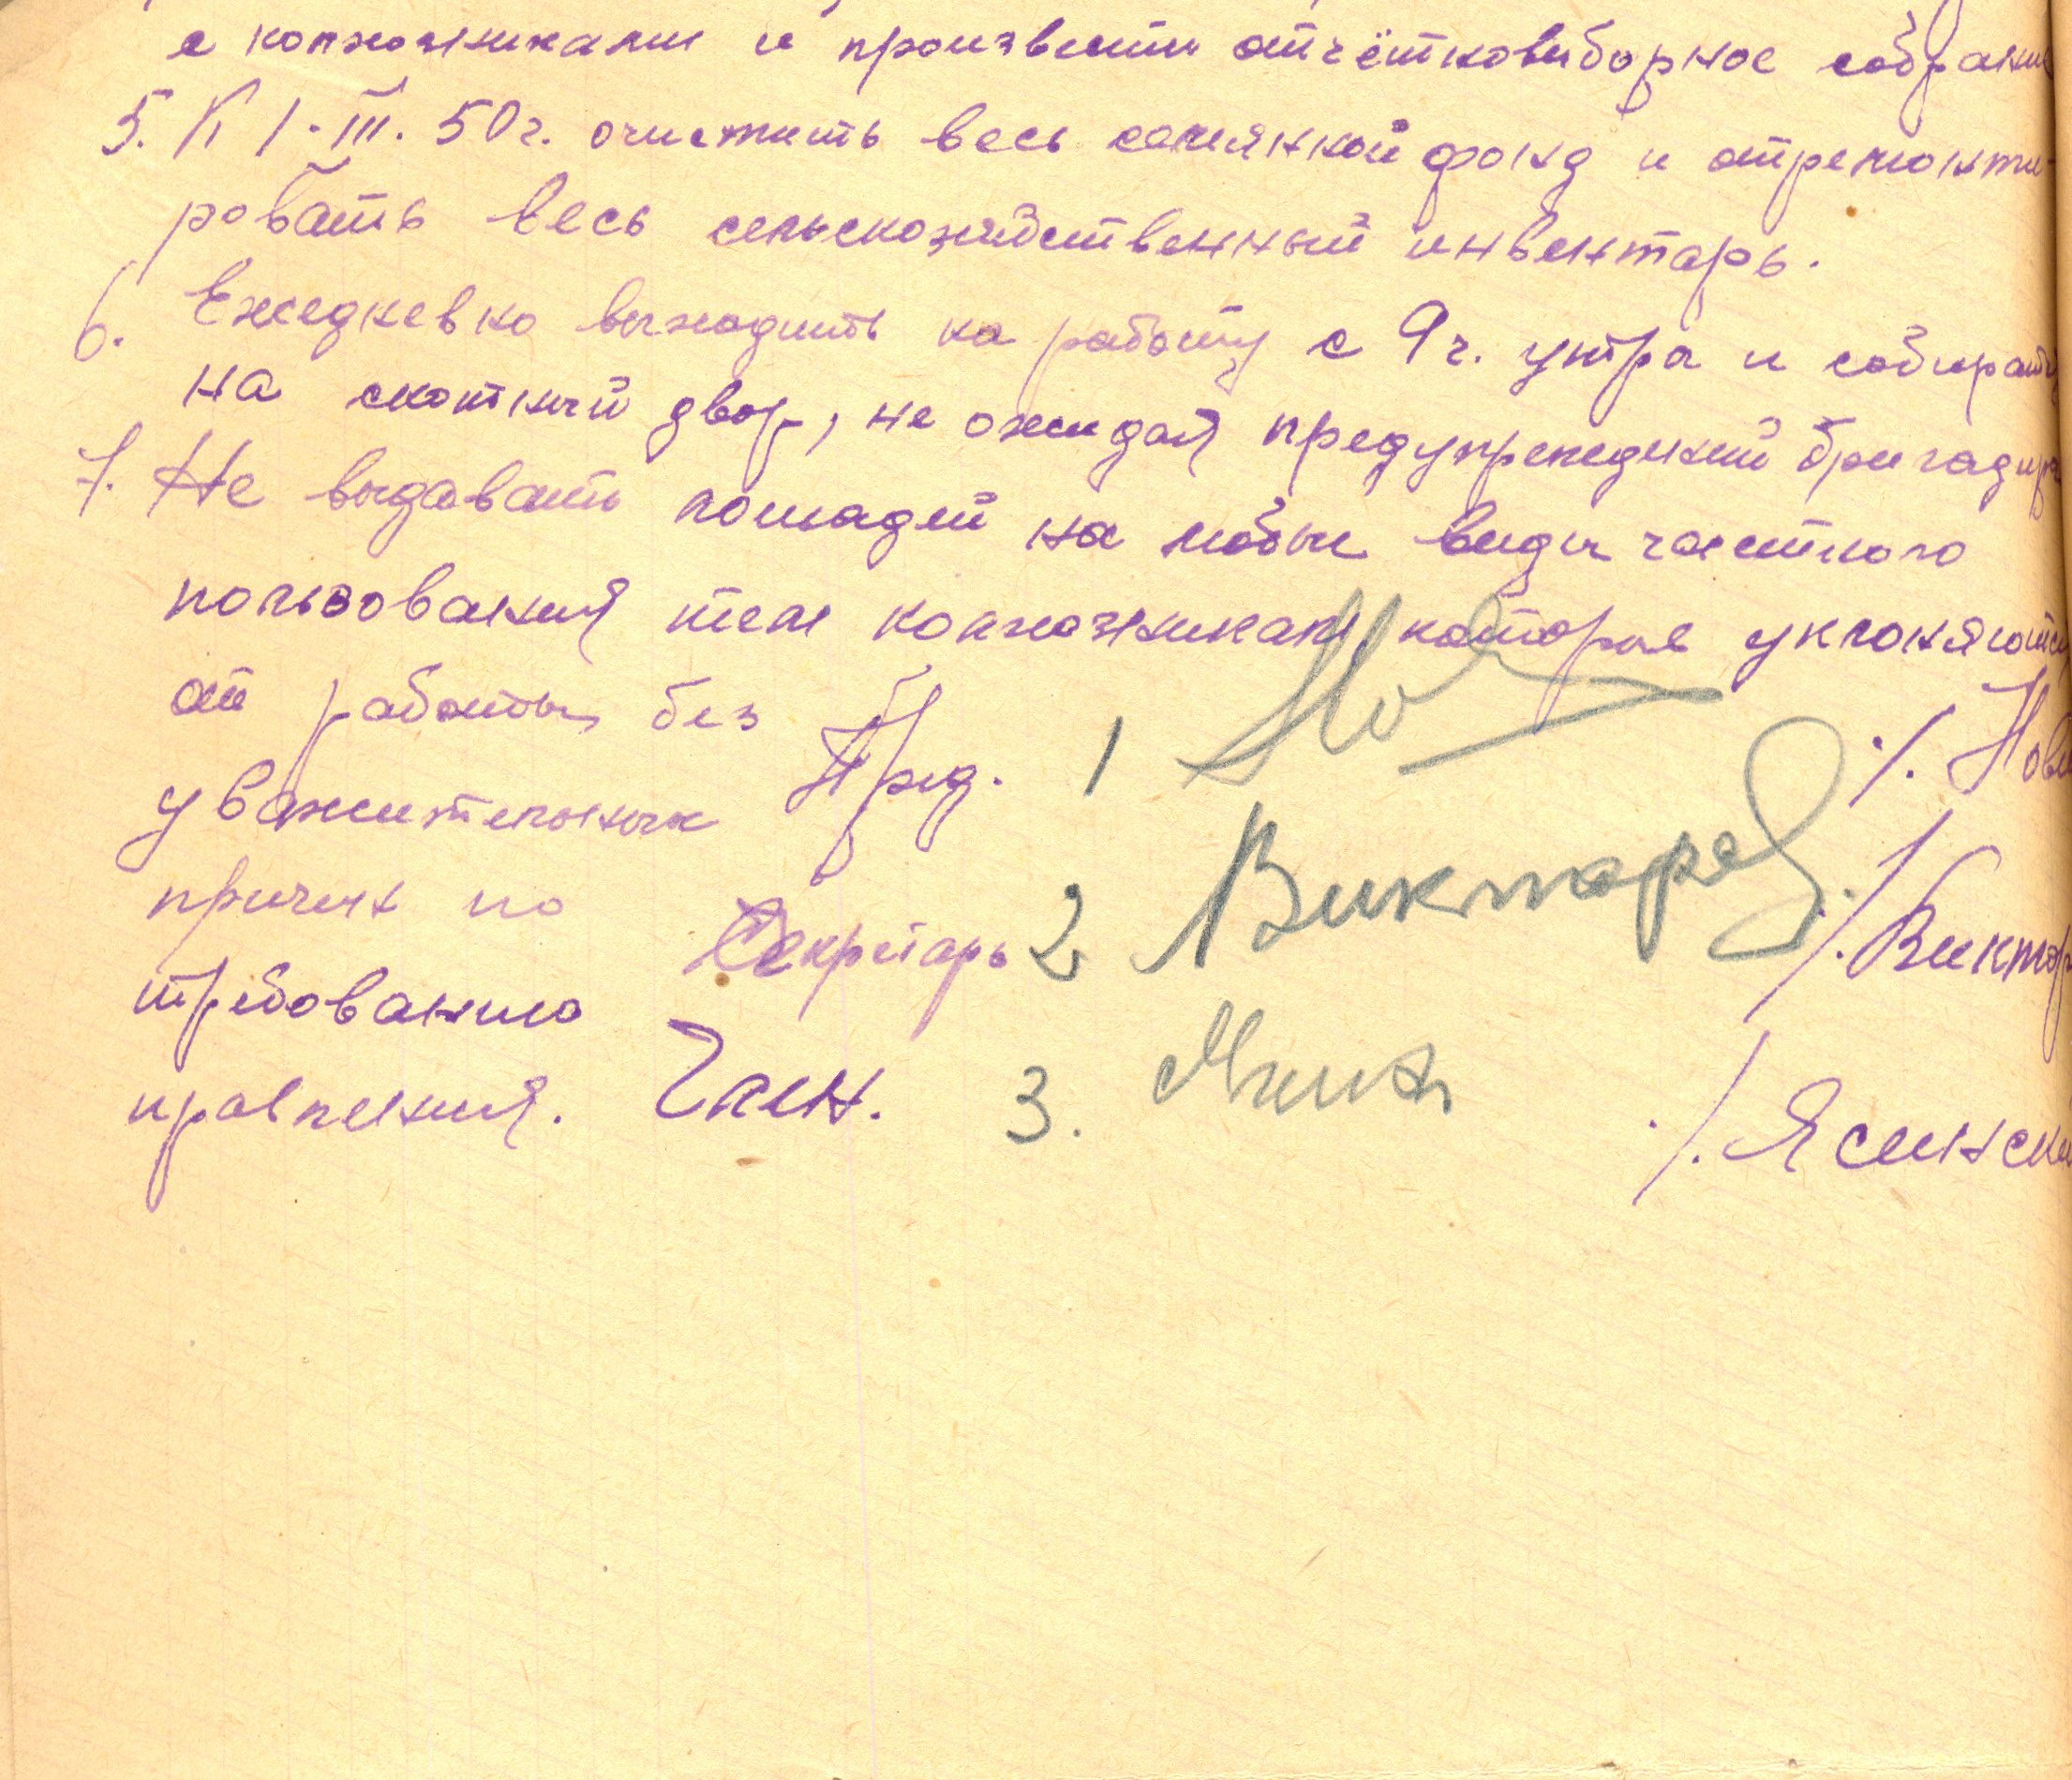 с колхозниками и произвести отчётновыборное собрание
5. К 1-III. 50г. очистить весь семянной фонд и отремонти-
ровать весь сельскохозяйственный инвентарь.
6. Ежедневно выходить на работу с 9 ч. утра и собират
на скотный двор, не ожидая предупреждений бригадира
7. Не выдавать лошадей на любые виды частного
пользования тем колхозникам, которые уклоняются
от работы без
уважительных
причин по
требованию
правления.
Пред. 1 /. Нов
Секретарь 2 Викторов /. Виктор
Член. 3. /. Ясинский